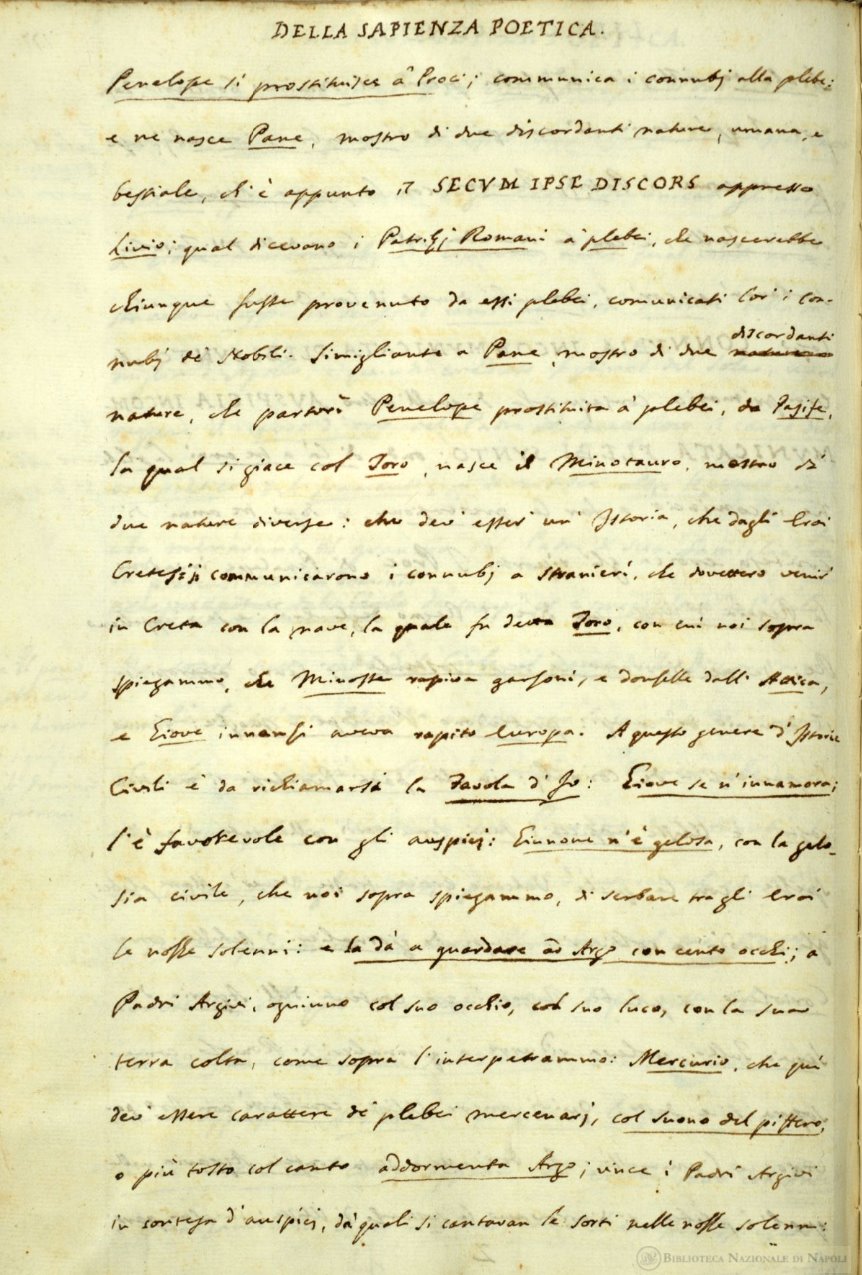 DELLA SAPIENZA POETICA.
Penelope si prostituisce a' Proci; communica i connubj alla plebe:
e ne nasce Pane, mostro di due discordanti nature, umana, e
bestiale, ch'è appunto il SECVM IPSE DISCORS appresso
Livio; qual dicevano i Patrizj Romani a' plebei, che nascerebbe
chiunque fusse provenuto da essi plebei, comunicati lor' i con-
nubj de' Nobili. Simigliante a Pane, mostro di due discordanti
nature, che partorì Penelope prostituita a' plebei, da Pasife,
la qual si giace col Toro, nasce il Minotauro, mostro di
due nature diverse: che dev' esser' un' Istoria, che dagli Eroi
Cretesi si communicarono i connubj a stranieri, che dovettero venir'
in Creta con la nave, la quale fu detta Toro, con cui noi sopra
spiegammo, che Minosse rapiva garzoni, e donzelle dall' Attica,
e Giove innanzi aveva rapito Europa. A questo genere d' Istorie
Civili è da richiamarsi la Favola d' Io: Giove se n'innamora;
l'è favorevole con gli auspicj: Giunone n'è gelosa, con la gelo-
sia civile, che noi sopra spiegammo, di serbare tra gli Eroi
le nozze solenni: e la dà a guardare ad Argo con cento occhi; a
Padri Argivi, ogniuno col suo occhio, col suo luco, con la sua
terra colta, come sopra l'interpetrammo: Mercurio, che qui
dev' essere carattere de' plebei mercenarj, col suono del piffero,
o più tosto col canto addormenta Argo; vince i Padri Argivi
in contesa d'auspicj, da' quali si cantavan le sorti nelle nozze solenni:
BIBLIOTECA NAZIONALE DI NAPOLI